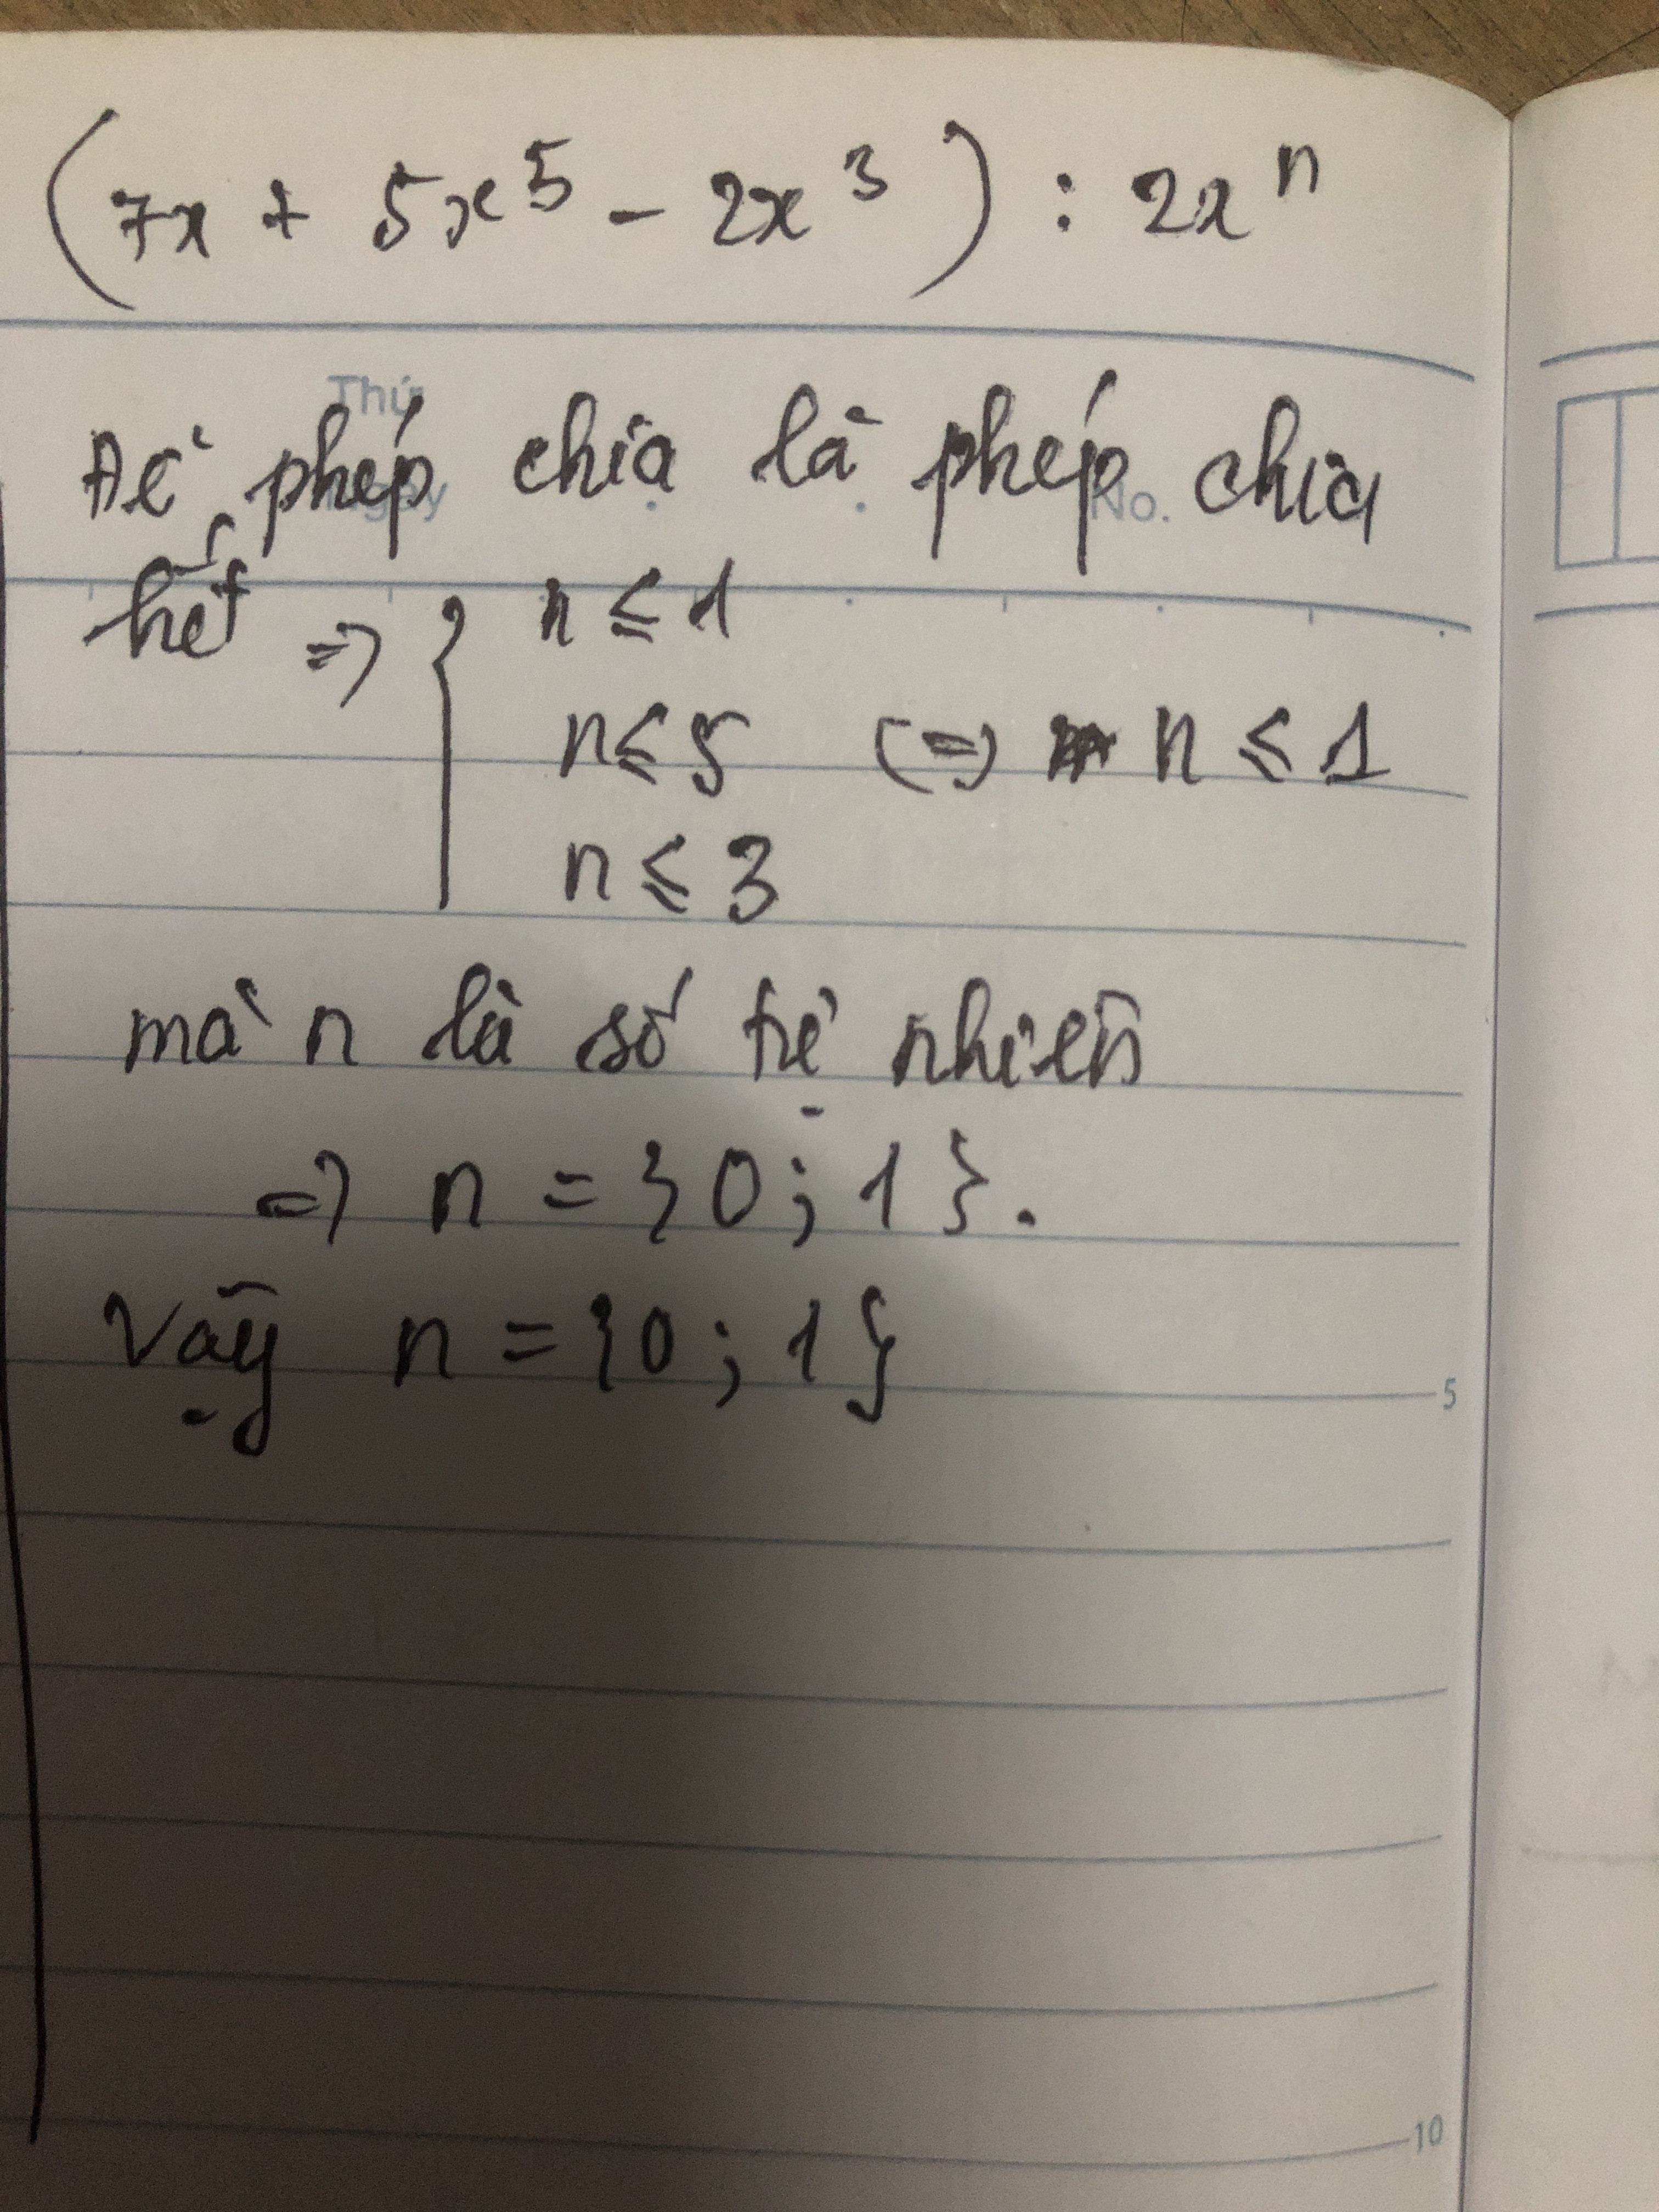 (7x + 5x⁵ - 2x³) : 2xⁿ
Thứ
Để phép chia là phép chia
Ngày No.
hết => { n ≤ 1
n ≤ 5 (=) n ≤ 1
n ≤ 3
mà n là số tự nhiên
=> n = {0 ; 1}.
Vậy n = {0 ; 1}
5
10